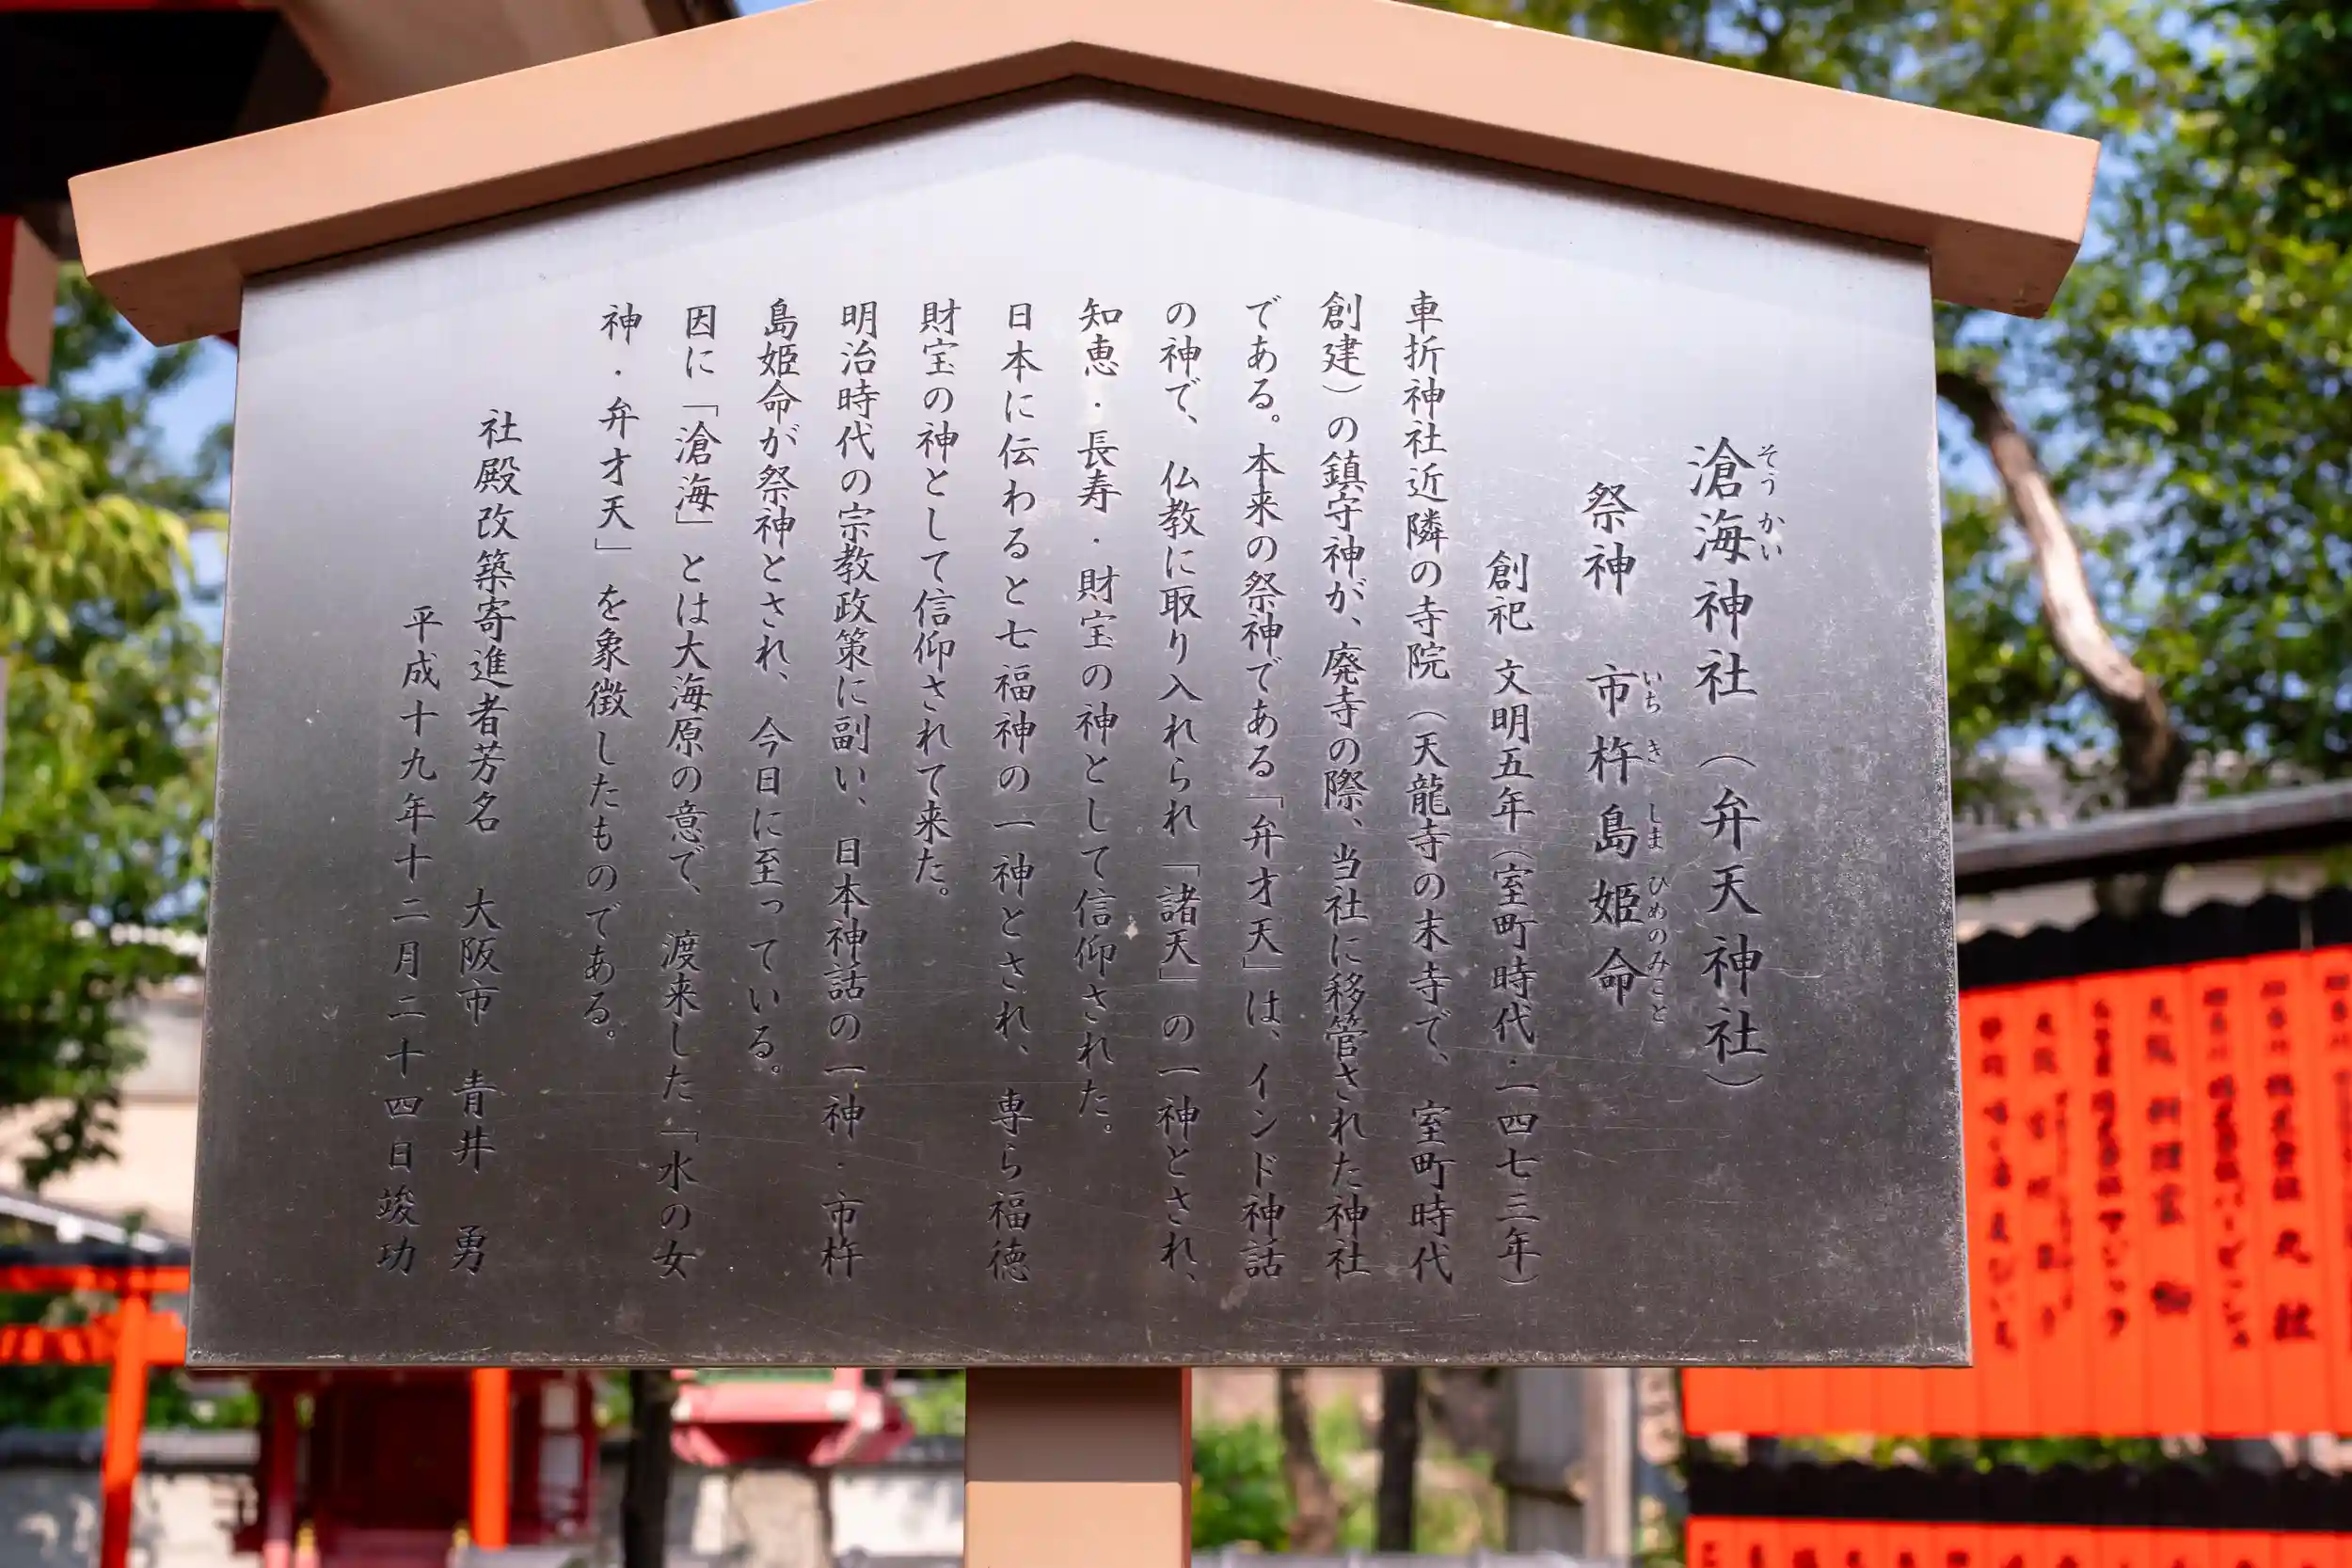 滄海神社（弁天神社）
そうかい
祭神　市杵島姫命
いちきしまひめのみこと
創祀 文明五年（室町時代・一四七三年）
車折神社近隣の寺院（天龍寺の末寺で、室町時代
創建）の鎮守神が、廃寺の際、当社に移管された神社
である。本来の祭神である「弁才天」は、インド神話
の神で、仏教に取り入れられ「諸天」の一神とされ、
知恵・長寿・財宝の神として信仰された。
日本に伝わると七福神の一神とされ、専ら福徳
財宝の神として信仰されて来た。
明治時代の宗教政策に副い、日本神話の一神・市杵
島姫命が祭神とされ、今日に至っている。
因に「滄海」とは大海原の意で、渡来した「水の女
神・弁才天」を象徴したものである。
社殿改築寄進者芳名　大阪市　青井　勇
平成十九年十二月二十四日竣功